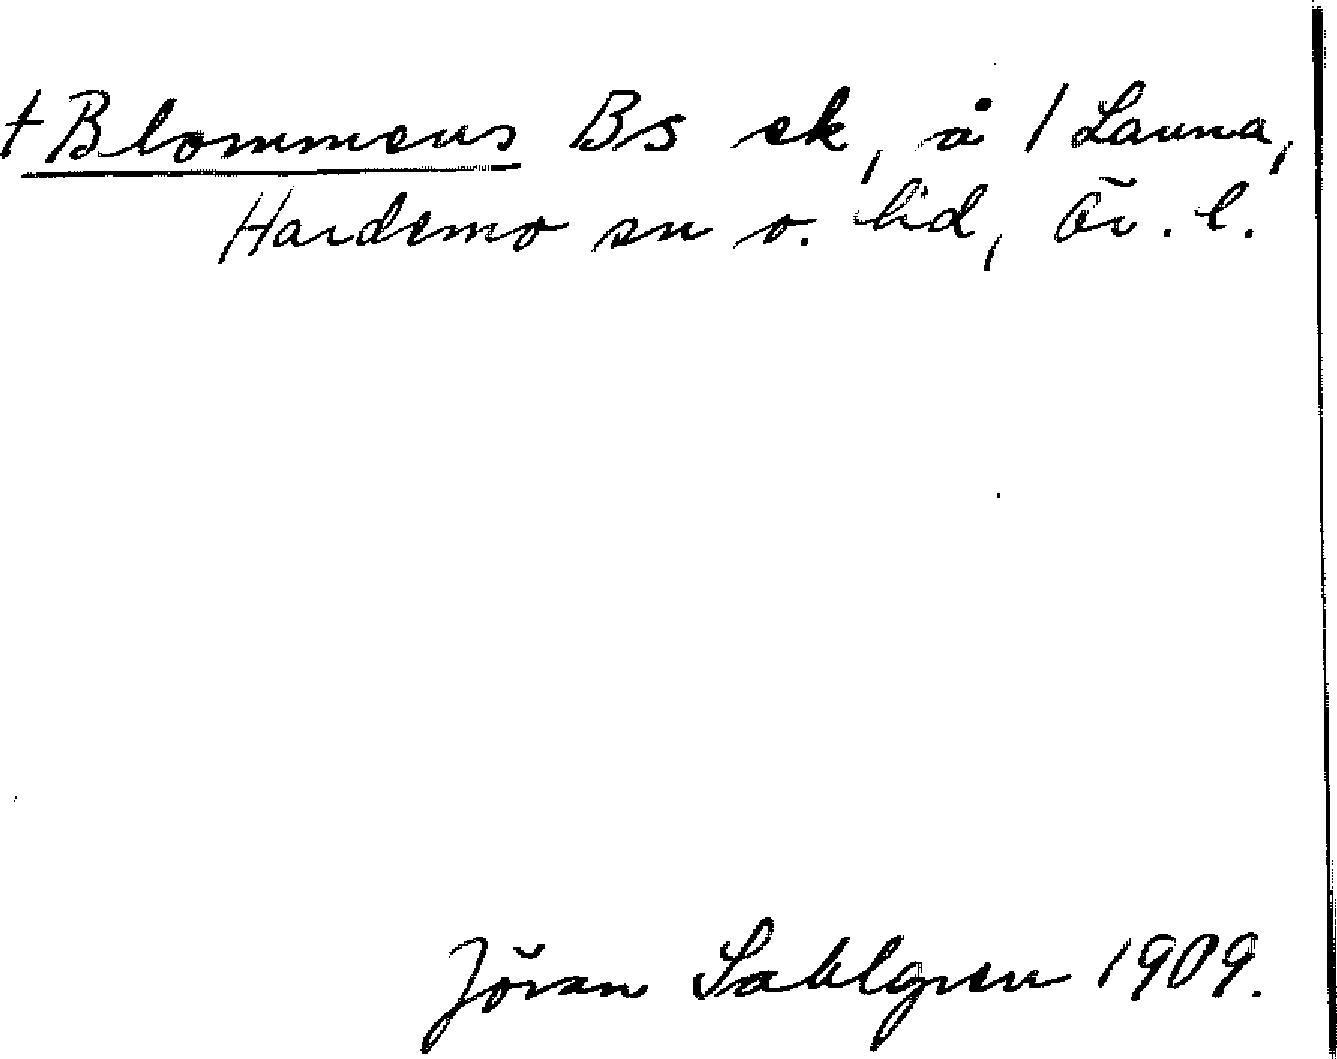 † Blommens Bs ek, å 1 Launa,
Hardemo sn o. hd, Ör. l.
Jöran Sahlgren 1909.